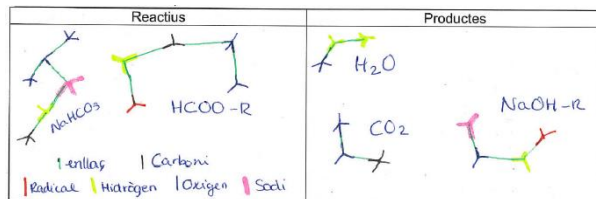 Reactius
Productes
NaHCO3
HCOO-R
H2O
CO2
NaOH-R
enllaç
Carboni
Radical
Hidrògen
Oxigen
Sodi